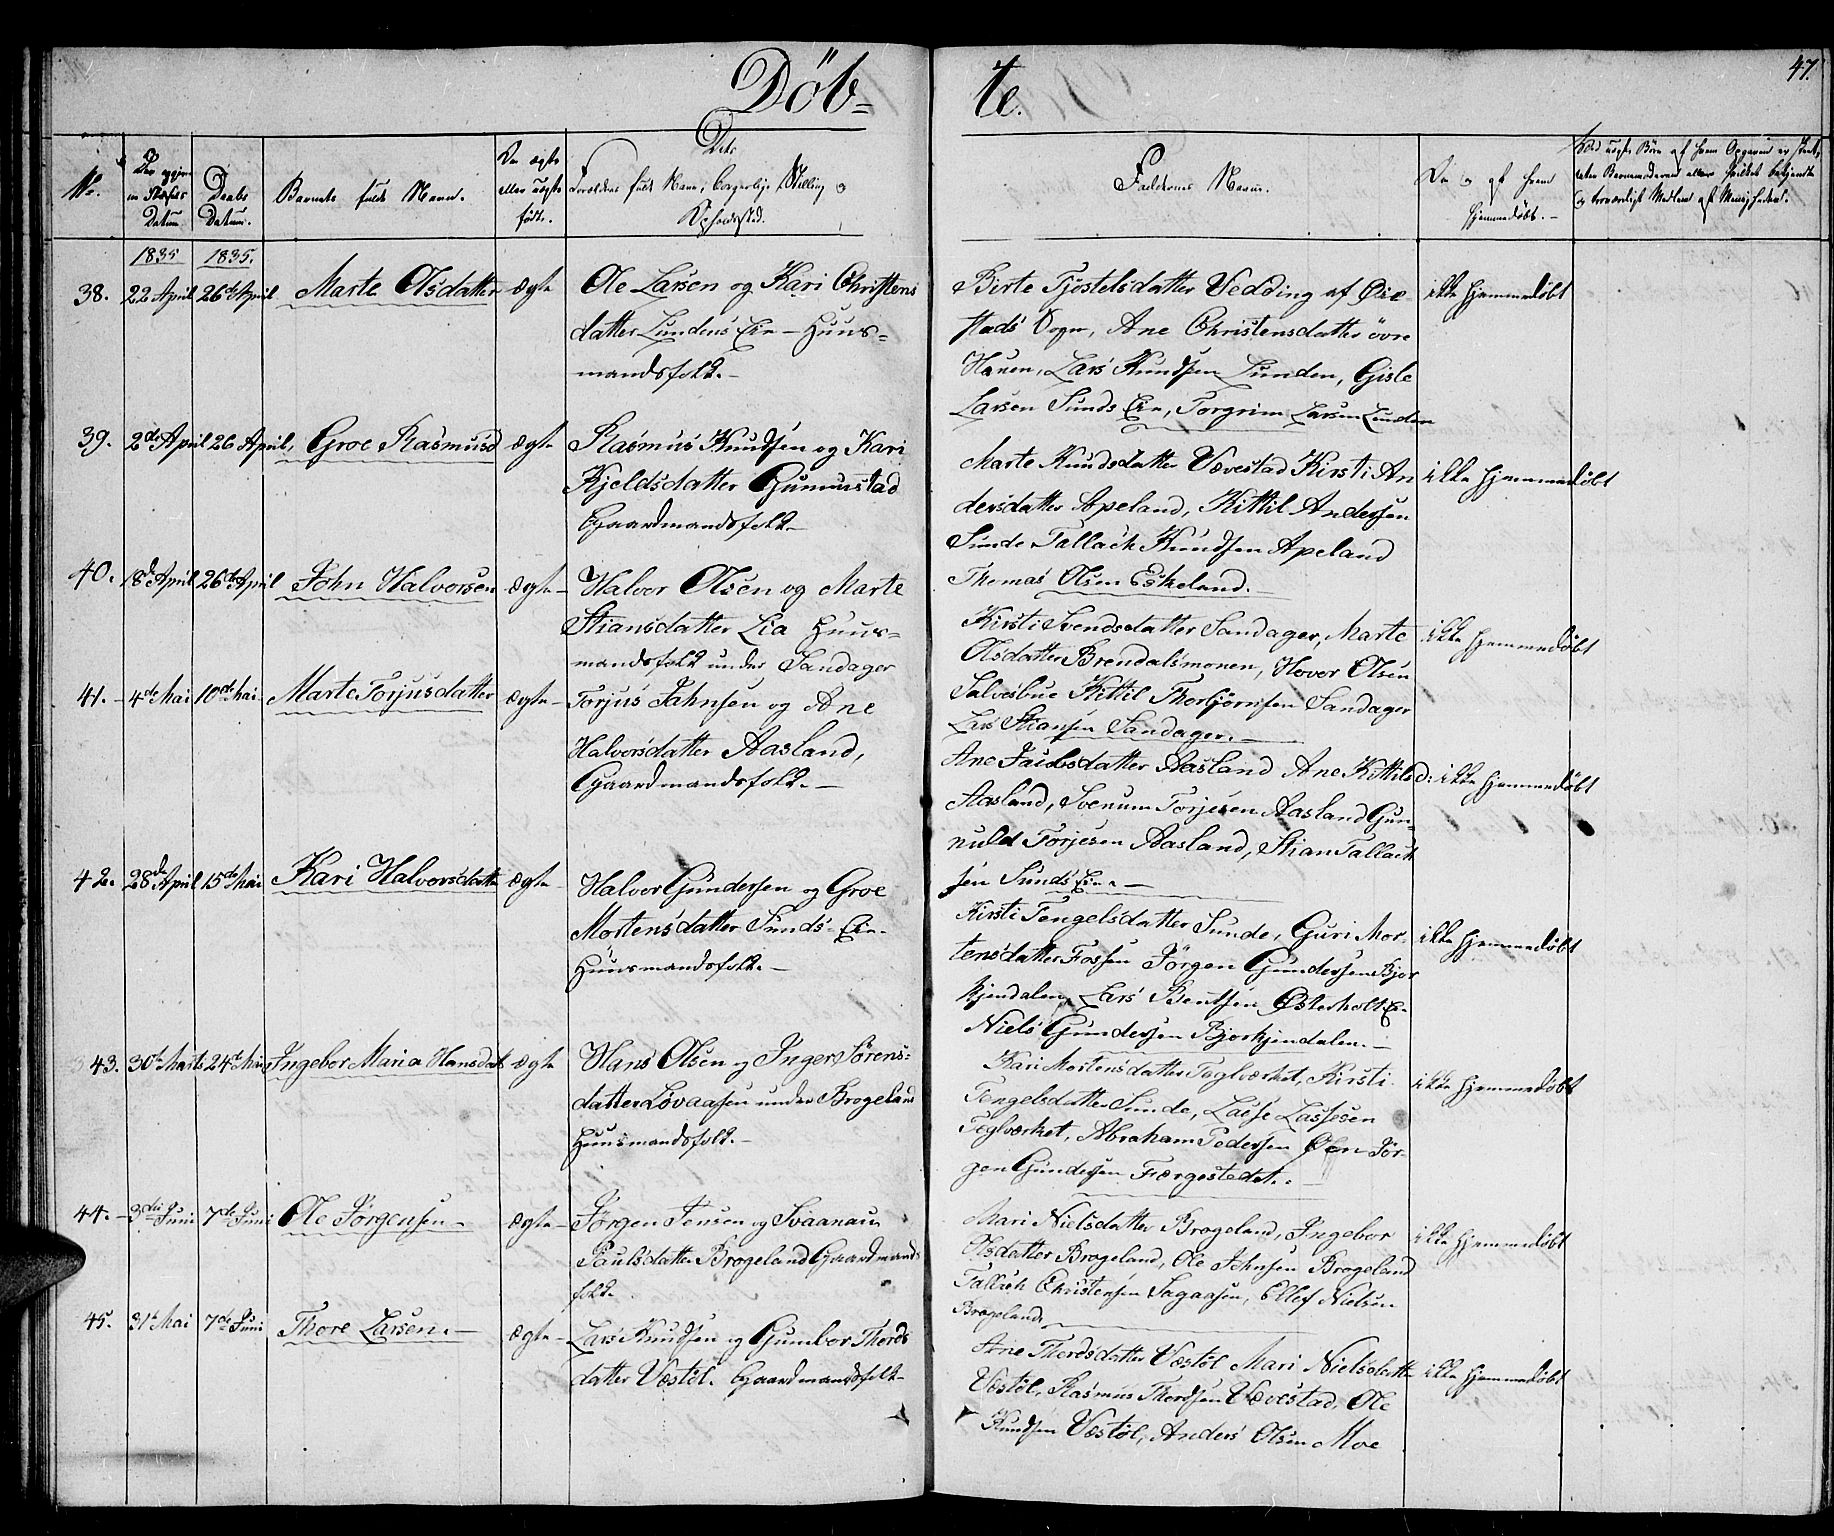 Döb=
te.
47.
No.
Datum.
Daabs
Datum.
Barnets fulde Navn.
Om ægte
eller uægte
født.
Dets
Forældres fulde Navn, borgerlige Stilling og
Opholdssted.
Faddernes Navn.
Om og af hvem
hjemmedøbt.-
1835 1835.
38. 22 April 26de April Marte Olsdatter ægte
Ole Larsen og Kari Christens
datter Lundens Eie- Huus=
mandsfolk.-
Birte Tjostelsdatter Vedding af Øie
stads Sogn, Ane Christensdatter övre
Hauen, Lars Knudsen Lunden, Gisle
Larsen Sunds Eie, Torgrim Larsen Lunden
ikke hjemmedøbt
39. 2de April 26 April, Groe Rasmusd ægte
Rasmus Knudsen og Kari
Kjeldsdatter Gumustad
Gaardmandsfolk-
Marte Knudsdatter Vævestad Kirsti An
dersdatter Apeland, Kittil Andersen
Sunde Tallach Knudsen Apeland
Thomas Olsen Eskeland.-
ikke hjemmedøbt
40. 18de April 26de April John Halvorsen ægte-
Halvor Olsen og Marte
Stiansdatter Lia Huus=
mandsfolk under Sandager
Kirsti Svendsdatter Sandager, Marte
Olsdatter Brendalsmonen, Hovor Olsen
Salvesbue Kittil Thorbjørnsen Sandager
Lars Stiansen Sandager.-
ikke hjemmedøbt
41.- 4de Mai 10de Mai- Marte Torjusdatter ægte-
Torjus Jahnsen og Ane
Halvorsdatter Aasland,
Gaardmandsfolk.-
Ane Jacobsdatter Aasland Ane Kittilsd:
Aasland, Svenum Torjesen Aasland Gun-
nuld Torjesen Aasland, Stian Tallack
sen Sunds Eie.-
ikke hjemmedøbt
42. 28de April 15de Mai Kari Halvorsdatter ægte-
Halvor Gundersen og Groe
Mortensdatter Sunds- Eie-
Huusmandsfolk.-
Kirsti Tengelsdatter Sunde, Guri Mor-
tensdatter Fossen Jörgen Gundersen Bjor
kjendalen, Lars Bentsen Østerholt E-
Niels Gundersen Bjorkjendalen.-
ikke hjemmedøbt
43. 30te Marts 24de Mai Ingebor Maria Hansdat ægte
Hans Olsen og Inger Sörens=
datter Lövaasen under Brogeland
Huusmandsfolk.-
Kari Mortensdatter Teglværket, Kirsti
Tengelsdatter Sunde, Lasse Lassesen
Teglværket, Abraham Pedersen Øen Jör-
gen Gundersen Færgestedet.-
ikke hjemmedøbt
44.- 3die Juni 7de Juni Ole Jörgensen- ægte-
Jörgen Jensen og Svaanau
Paulsdatter Brogeland Gaardmands
folk
Mari Nielsdatter Brogeland, Ingebor
Olsdatter Brogeland, Ole Johnsen Brogeland
Tallich Christensen Sagaasen, Ellef Nielsen
Brogeland
ikke hjemmedøbt
45. 31te Mai 7de Juni Thore Larsen.- ægte-
Lars Knudsen og Gumbor Thords
datter Væstöl. Gaardmandsfolk-
Ane Thordsdatter Væstöl Mari Nielsdatter
Væstöl, Rasmus Thordsen Vævestad, Ole
Knudsen Væstöl, Anders Olsen Moe
ikke hjemmedøbt